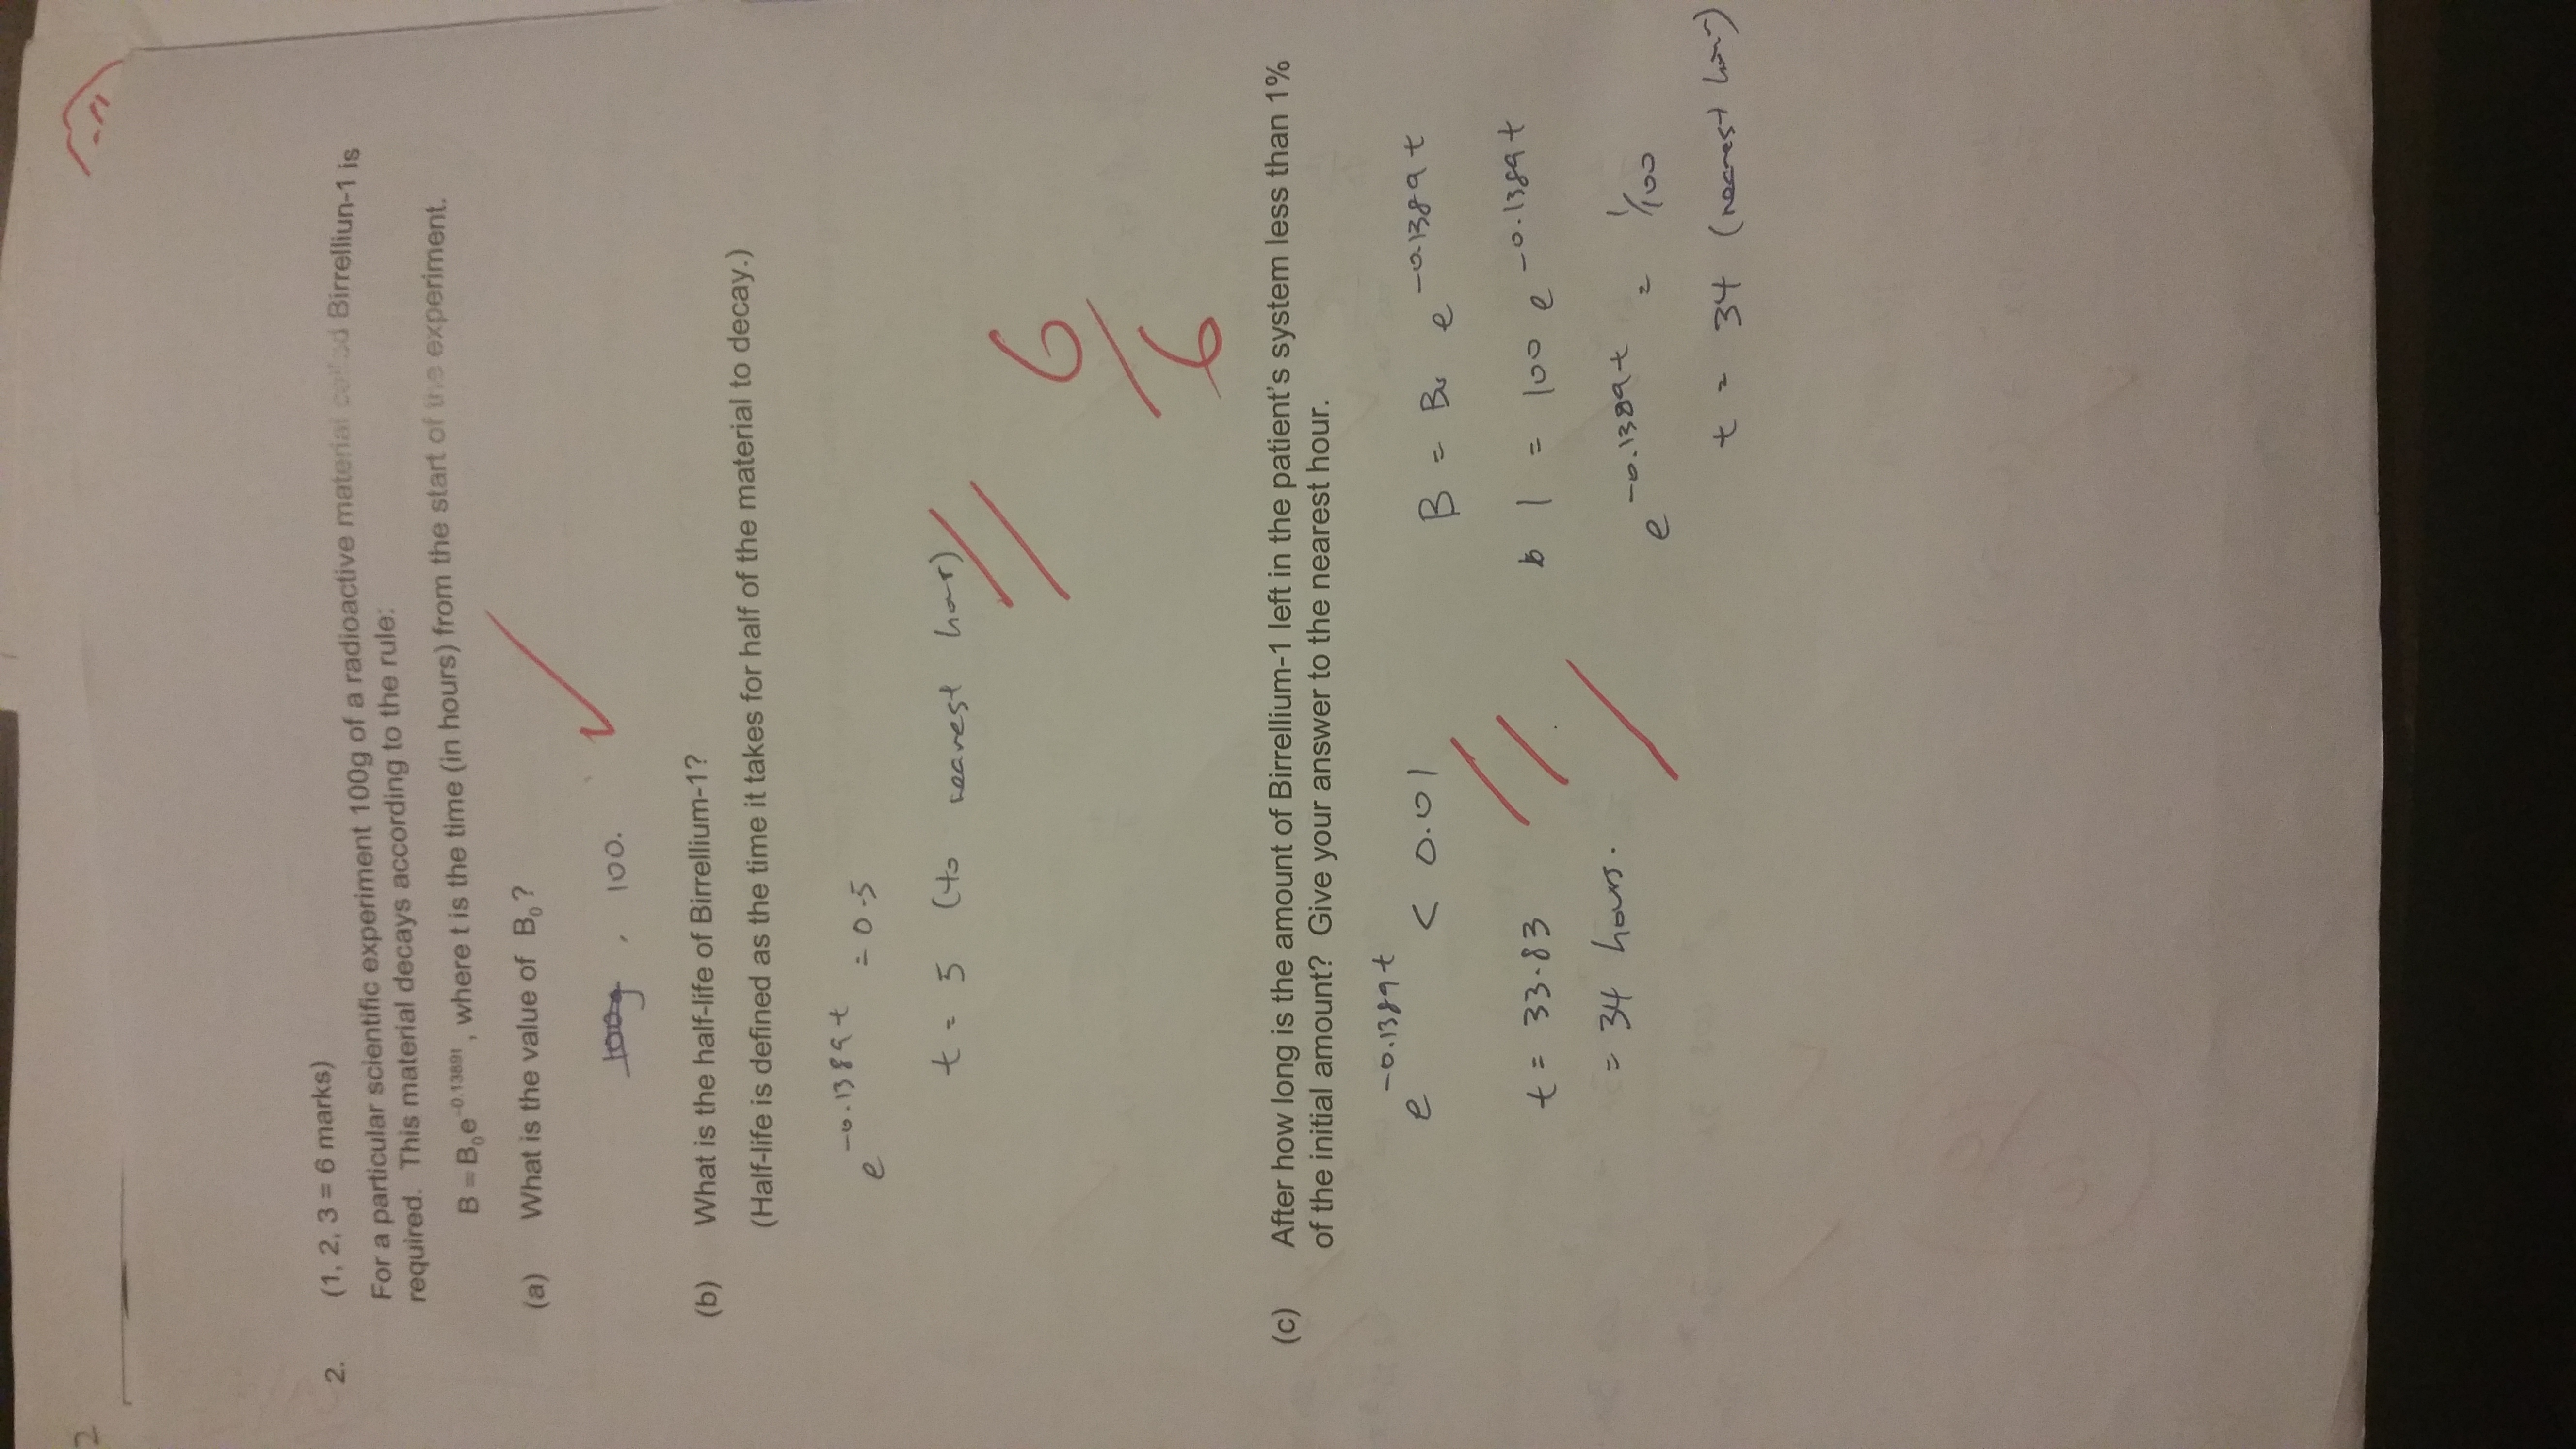 2
2. (1, 2, 3 = 6 marks)
For a particular scientific experiment 100g of a radioactive material called Birrelliun-1 is
required. This material decays according to the rule:
B = B₀e^-0.1389t, where t is the time (in hours) from the start of the experiment.
(a) What is the value of B₀?
100g , 100.
(b) What is the half-life of Birrellium-1?
(Half-life is defined as the time it takes for half of the material to decay.)
e^-0.1389t = 0.5
t = 5 (to nearest hour)
6/6
(c) After how long is the amount of Birrellium-1 left in the patient's system less than 1%
of the initial amount? Give your answer to the nearest hour.
e^-0.1389t < 0.01
t = 33.83
= 34 hours.
B = B₀ e^-0.1389t
1 = 100 e^-0.1389t
e^-0.1389t = 1/100
t = 34 (nearest hour)